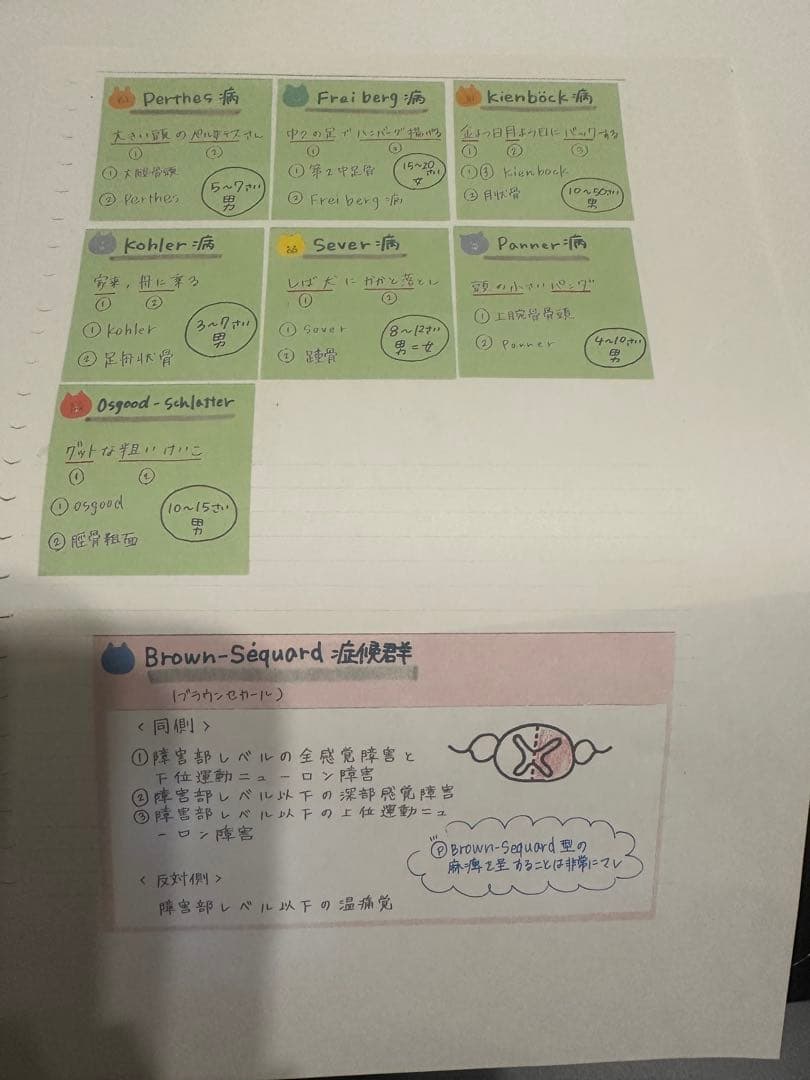 Perthes病
大きい頭のペルテスさん
① ②
① 大腿骨頭
② Perthes
5〜7さい
男
Freiberg病
中2の足でハンバーグ揚げる
① ②
① 第2中足骨
② Freiberg病
15〜20さい
女
Kienböck病
金よう日月よう日にバックする
① ② ③
①③ Kienböck
② 月状骨
10〜50さい
男
Kohler病
家来、舟に乗る
① ②
① Kohler
② 足舟状骨
3〜7さい
男
Sever病
しば犬にかかと落とし
① ②
① Sever
② 踵骨
8〜12さい
男=女
Panner病
頭の小さいパンダ
① 上腕骨骨頭
② Panner
4〜10さい
男
Osgood-schlatter
グットな粗いけいこ
① ②
① osgood
② 脛骨粗面
10〜15さい
男
Brown-Séquard症候群
(ブラウンセカール)
<同側>
①障害部レベルの全感覚障害と
下位運動ニューロン障害
②障害部レベル以下の深部感覚障害
③障害部レベル以下の上位運動ニュ
ーロン障害
Ⓟ Brown-Sequard型の
麻痺を呈することは非常にマレ
<反対側>
障害部レベル以下の温痛覚